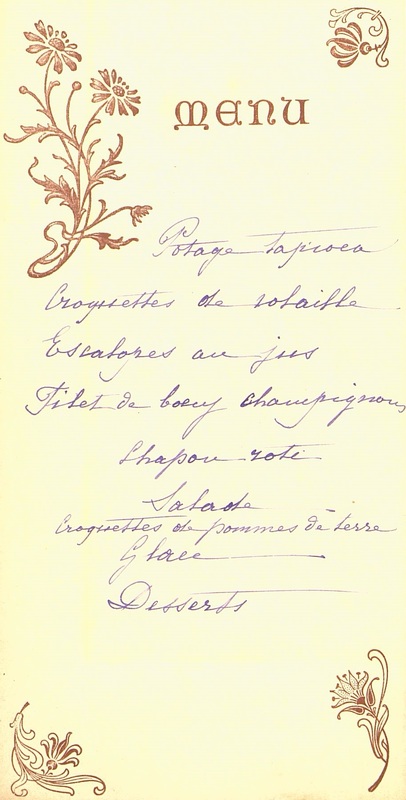 MENU
Potage tapioca
Croquettes de volaille
Escalopes au jus
Filet de bœuf champignons
Chapon roti
Salade
Croquettes de pommes de terre
Glace
Desserts